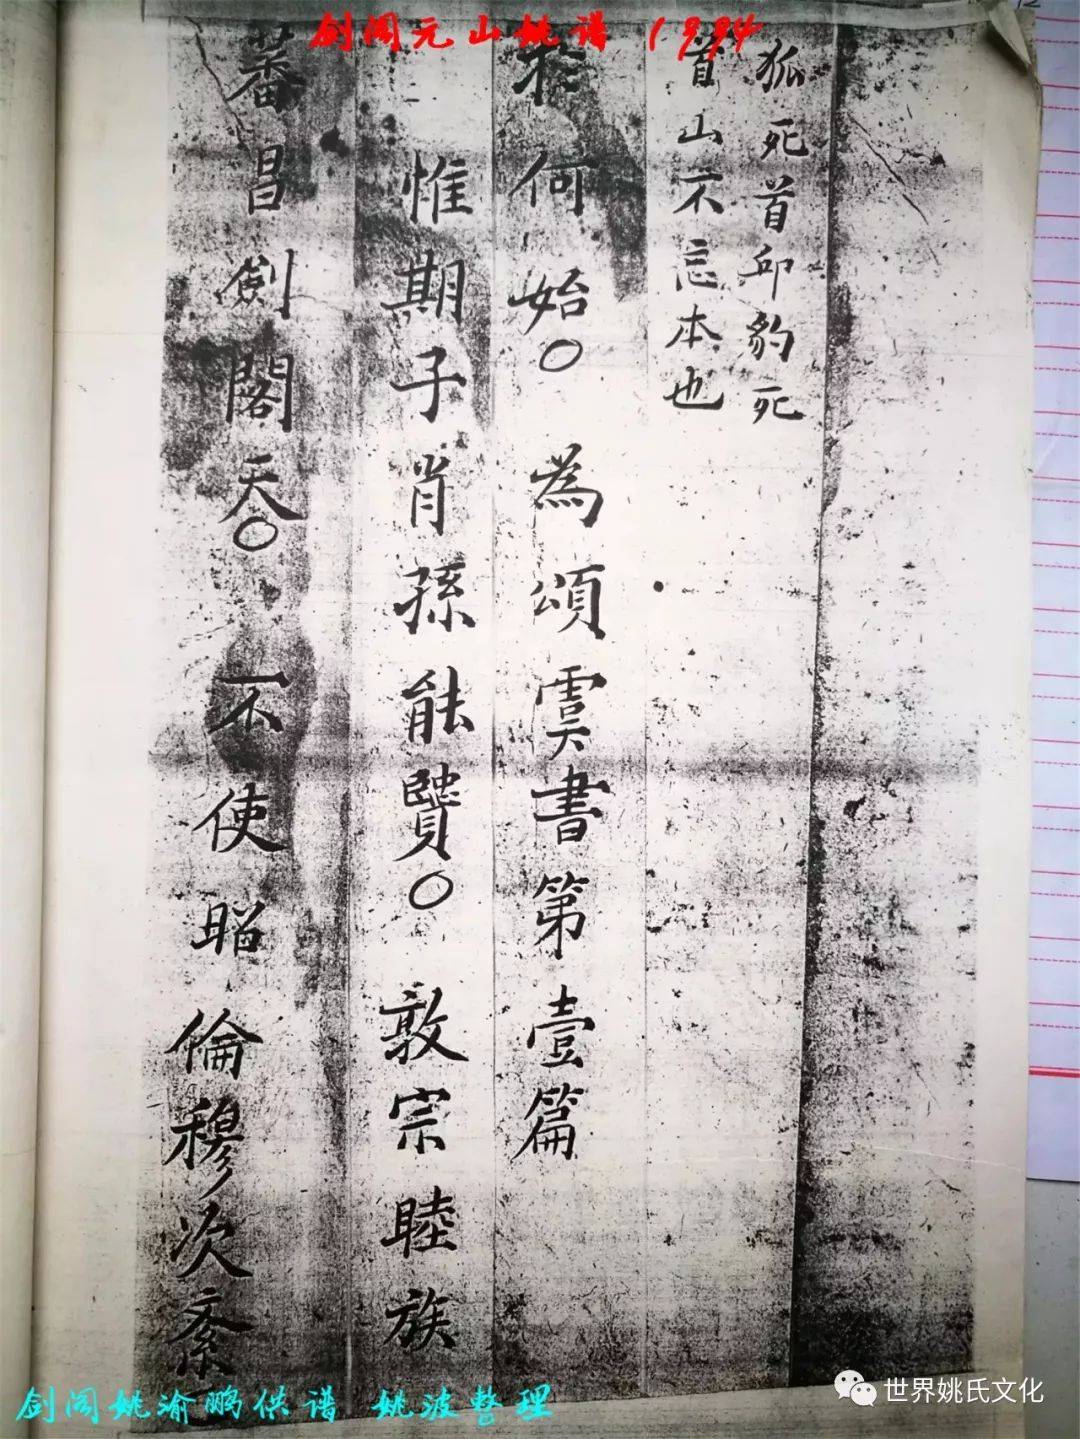 剑阁元山姚谱 1994
狐死首邱豹死
首山不忘本也
於何始○為頌虞書第壹篇
惟期子肖孫能賢○敦宗睦族
蕃昌劍閣天○不使昭倫穆次紊
剑阁姚渝鹏供谱 姚波整理
世界姚氏文化